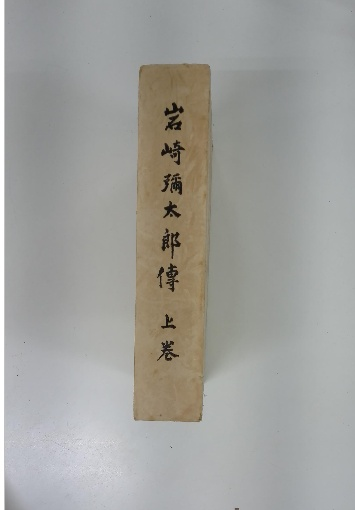 岩崎彌太郎傳 上巻